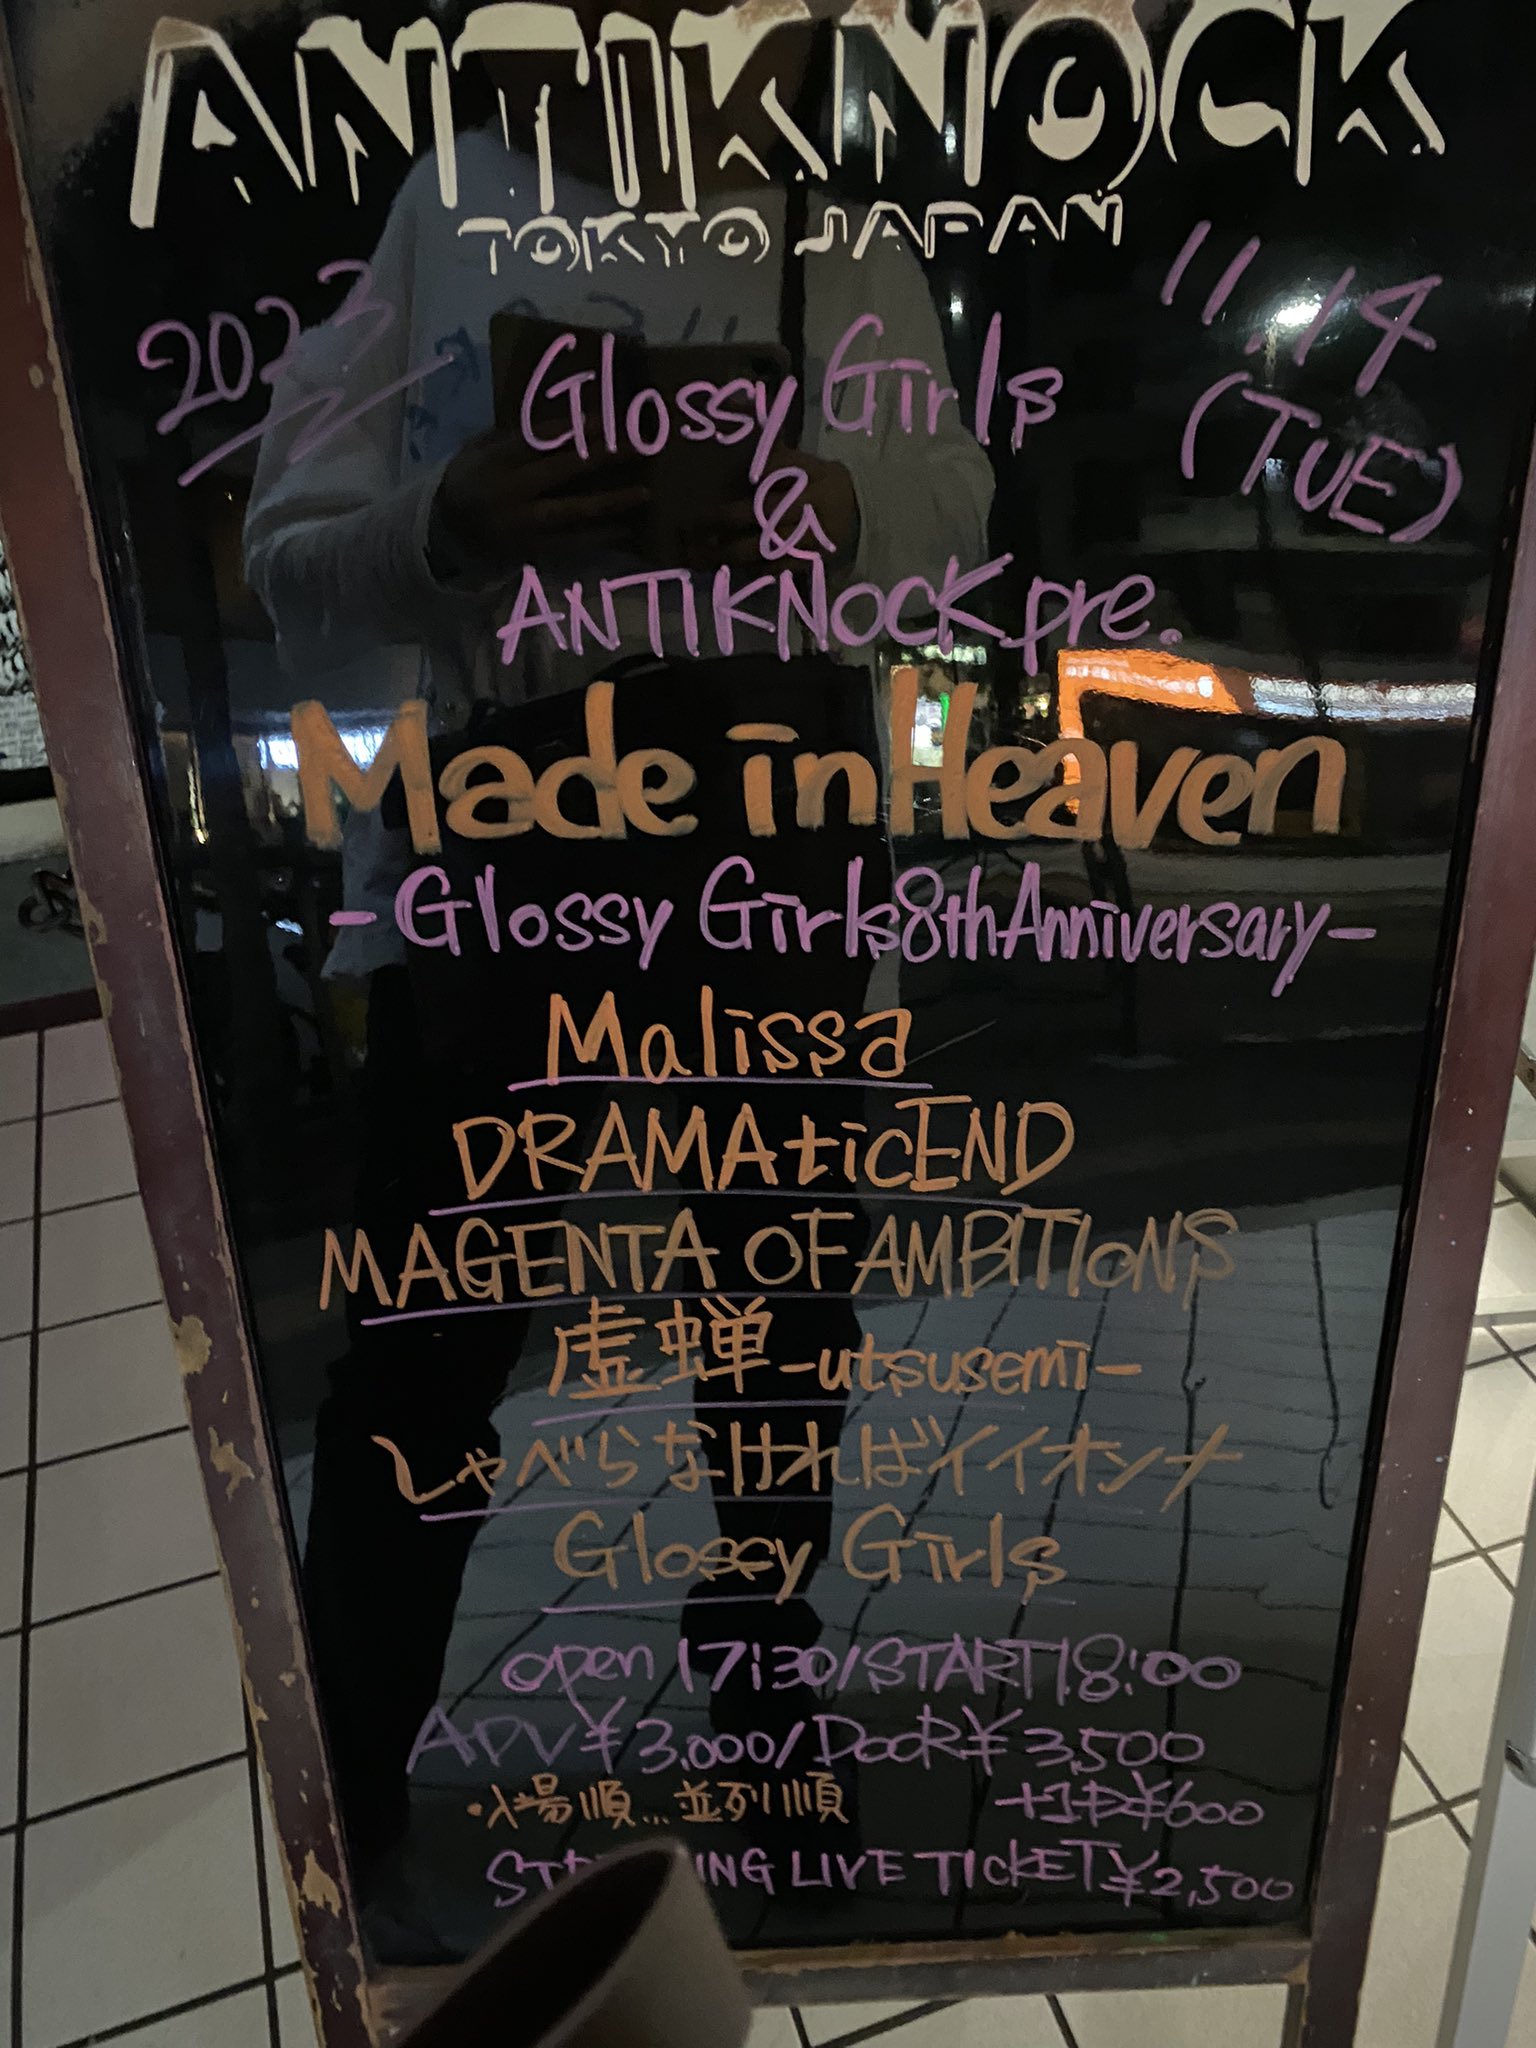 ANTIKNOCK
TOKYO JAPAN
2023
11.14
(TUE)
Glossy Girls
&
ANTIKNOCK pre.
Made in Heaven
-Glossy Girls 8th Anniversary-
Malissa
DRAMAticEND
MAGENTA OF AMBITIONS
虚蝉-utsusemi-
しゃべらなければイイオンナ
Glossy Girls
open 17:30/START18:00
ADV¥3,000/DooR¥3,500
・入場順...並列順 +1D¥600
LIVE TICKET¥2,500